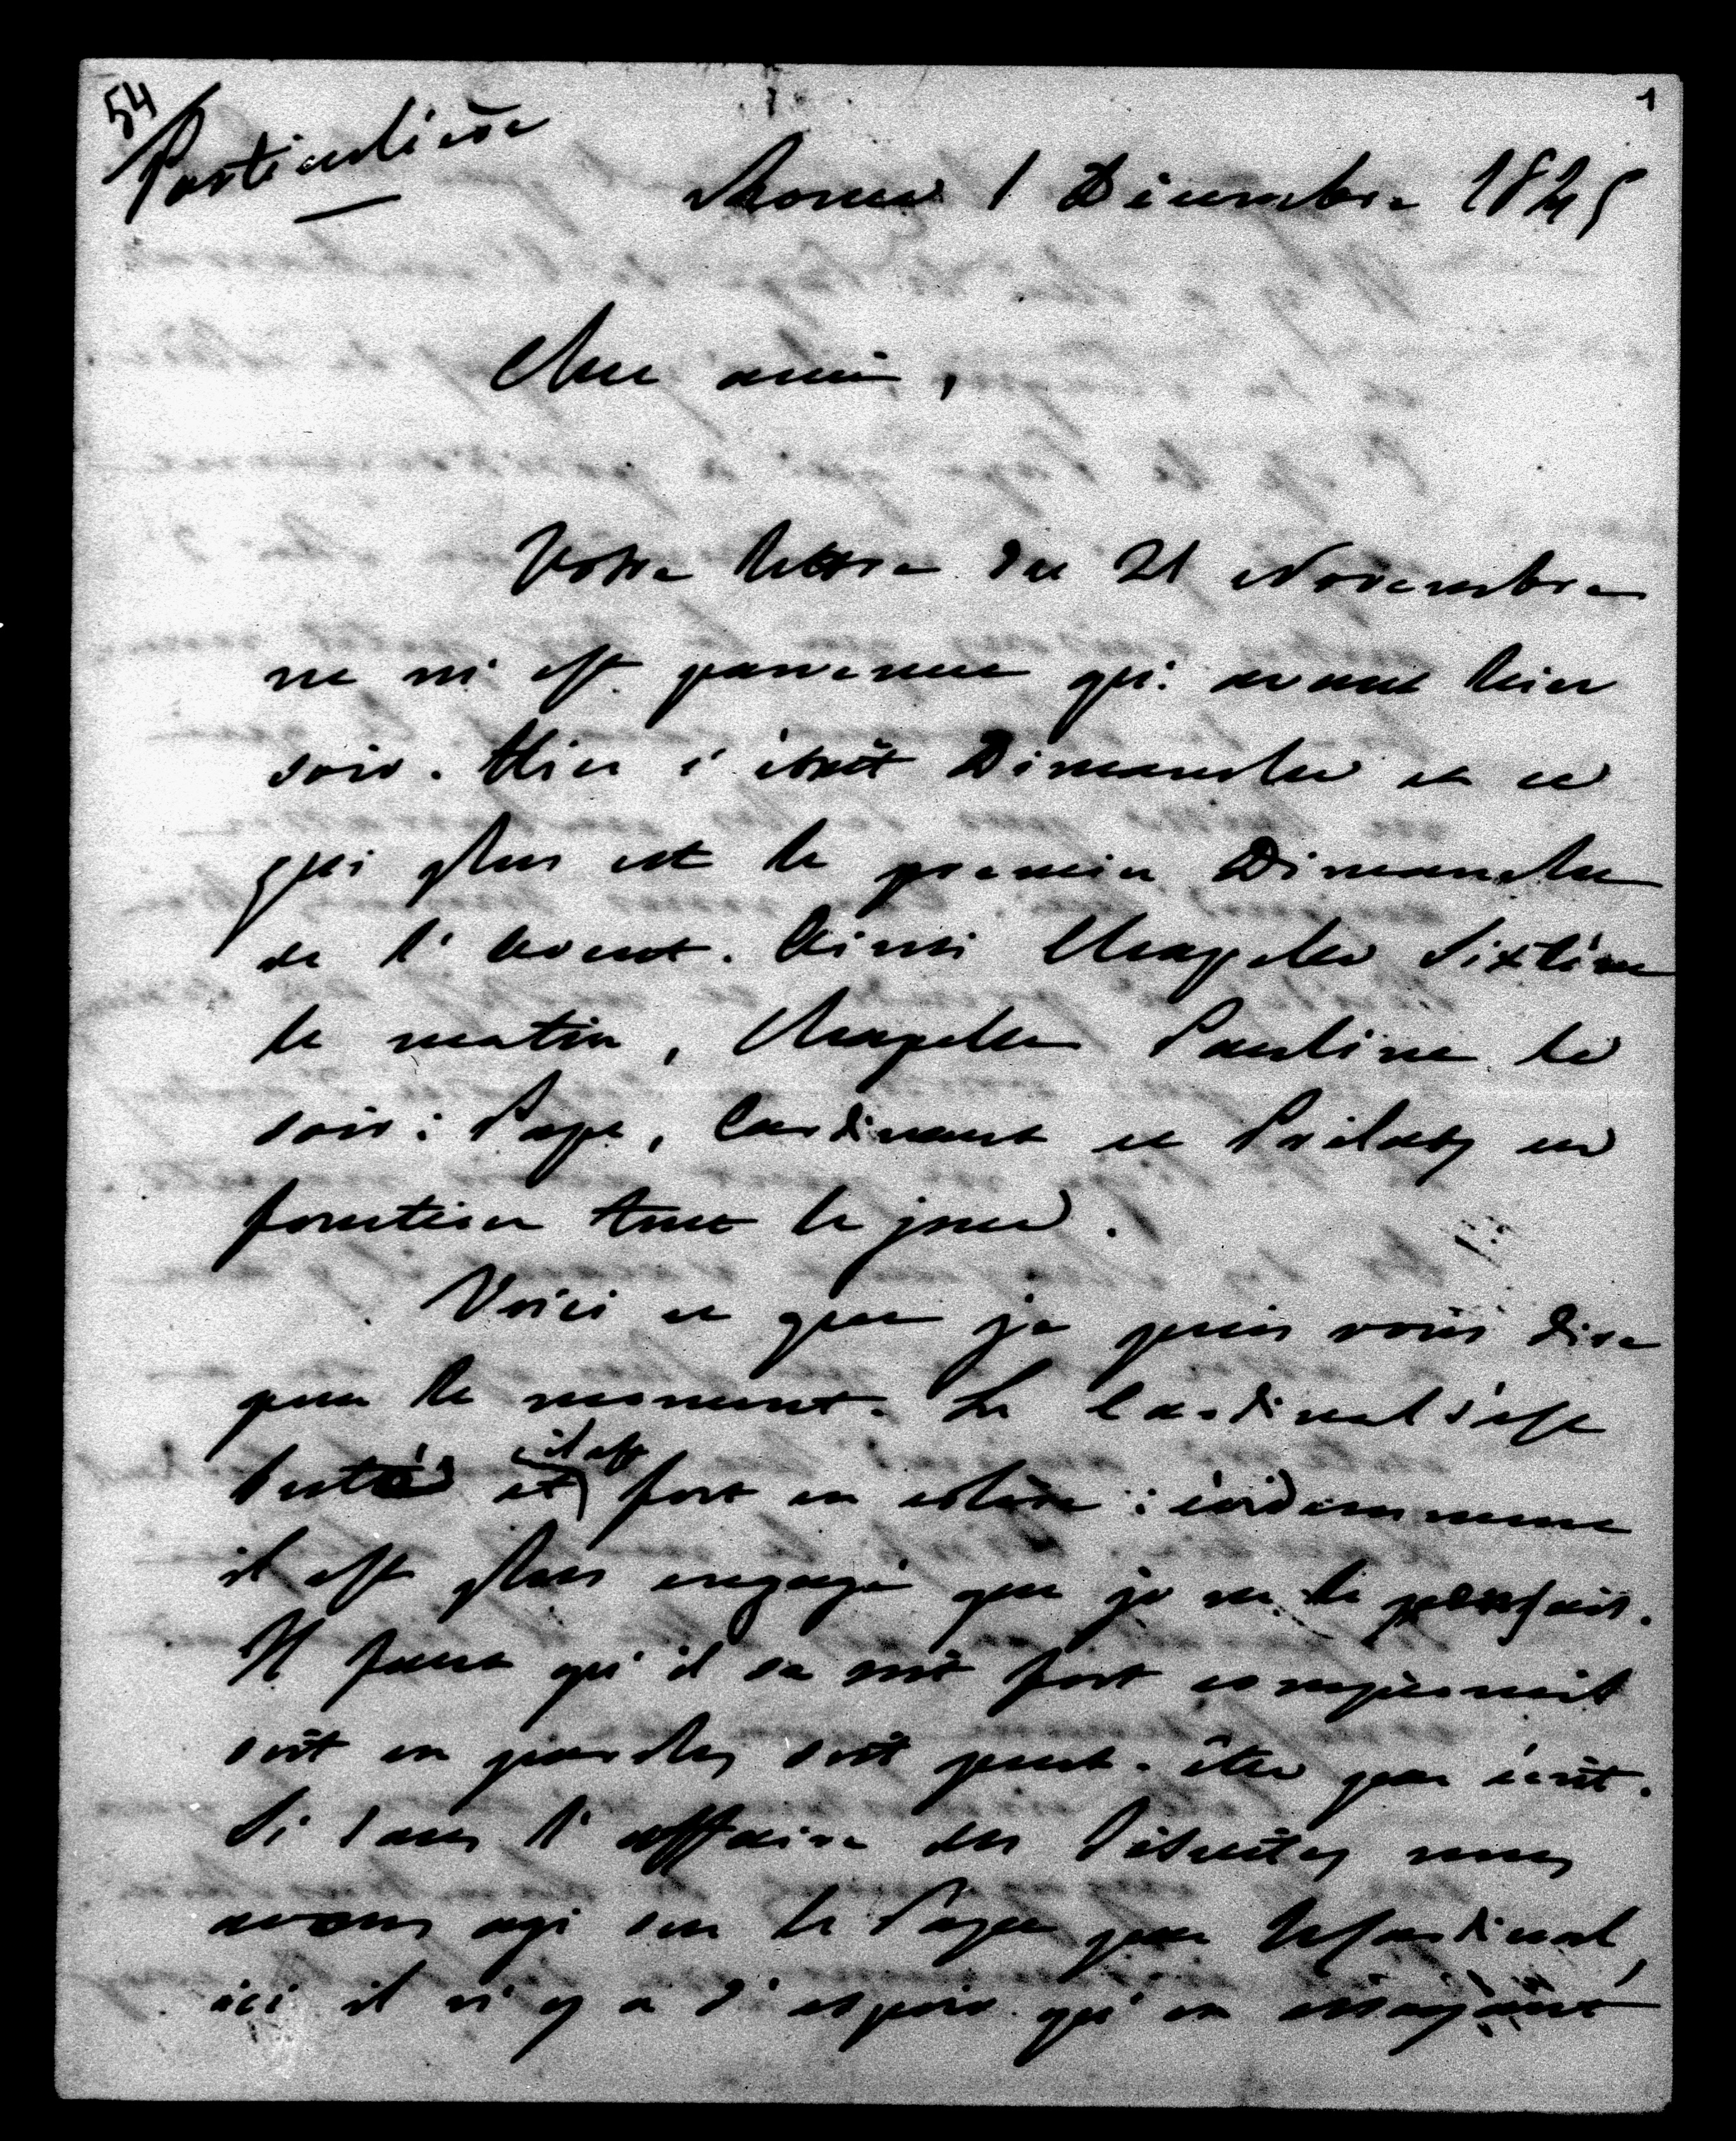 54
1
Particulière
Rome 1 Décembre 1845
Cher ami,
Votre lettre du 21 Novembre
ne m'est parvenue qu'avant hier
soir. Hier c'était Dimanche et ce
qui plus est le premier Dimanche
de l'Avent. Ainsi Chapelle Sixtine
le matin, Chapelle Pauline le
soir : Pape, Cardinaux et Prélats en
fonction tout le jour.
Voici ce que je puis vous dire
pour le moment. Le Cardinal s'est
buté et il est fort en colère : évidemment
il est plus engagé que je ne le pensais.
Il faut qu'il se soit fort compromis
soit en paroles soit peut-être par écrit.
Si dans l'affaire des Jésuites nous
avons agi sur le Pape par le Cardinal,
ici il n'y a d'espoir qu'en essayant